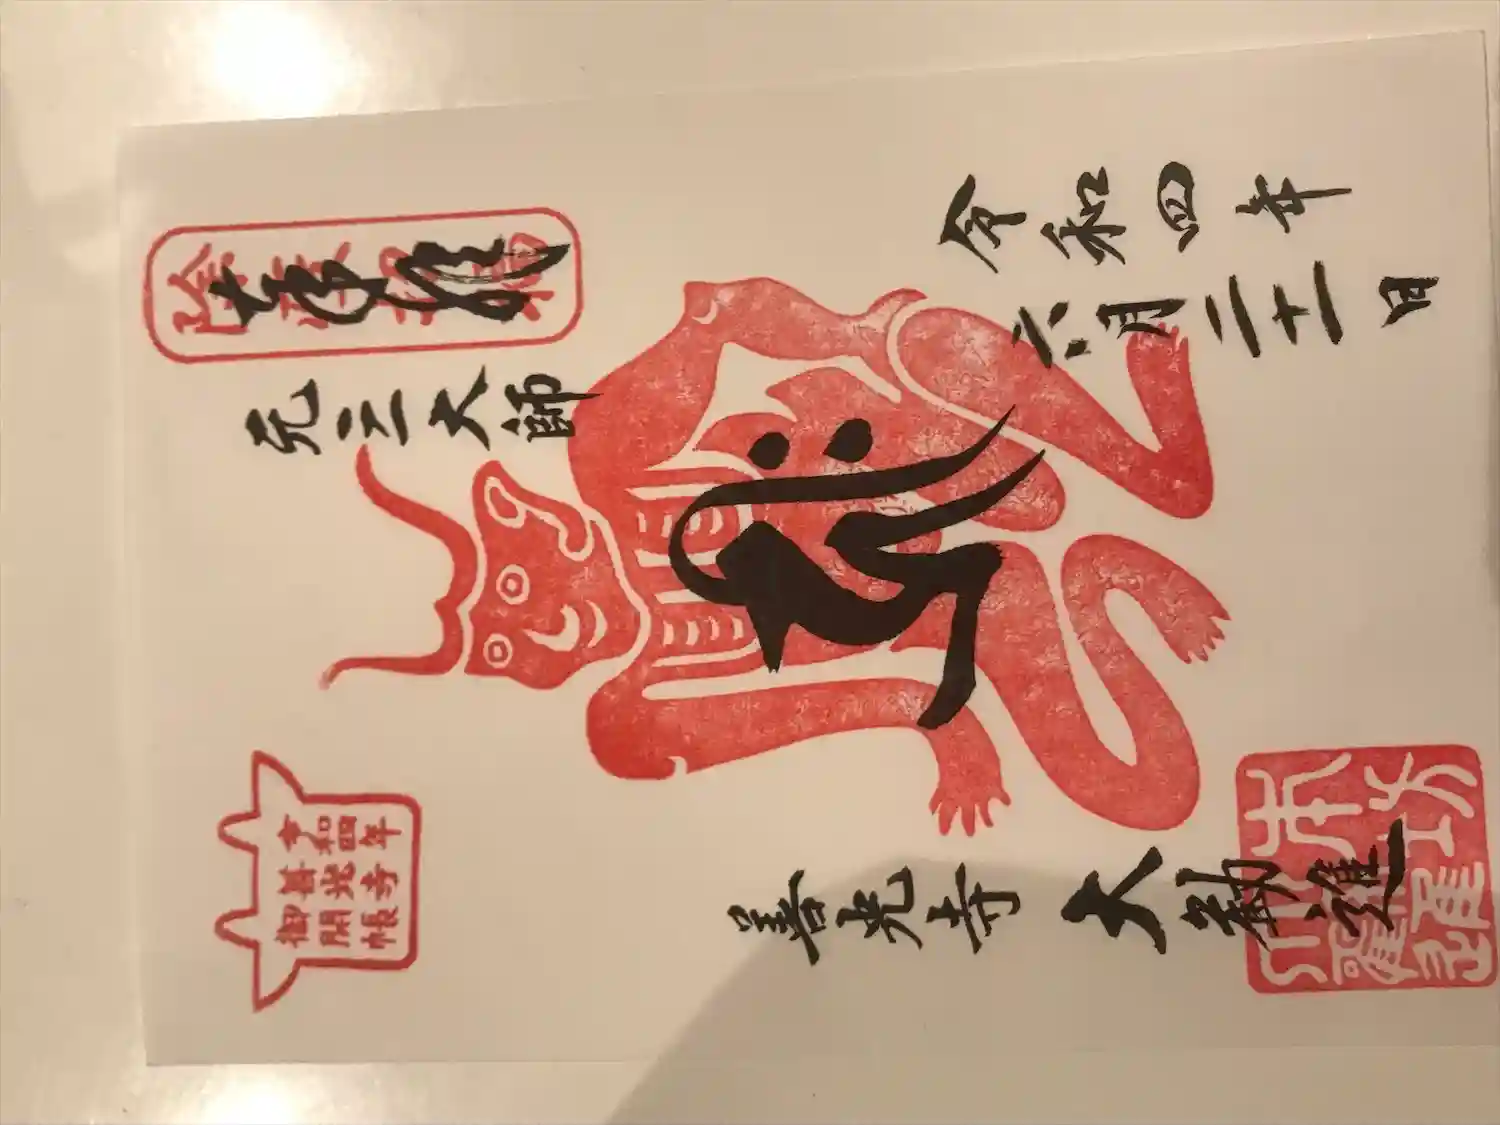 奉拝
元三大師
令和四年
六月二十一日
善光寺 大勧進
令和四年
善光寺
御開帳